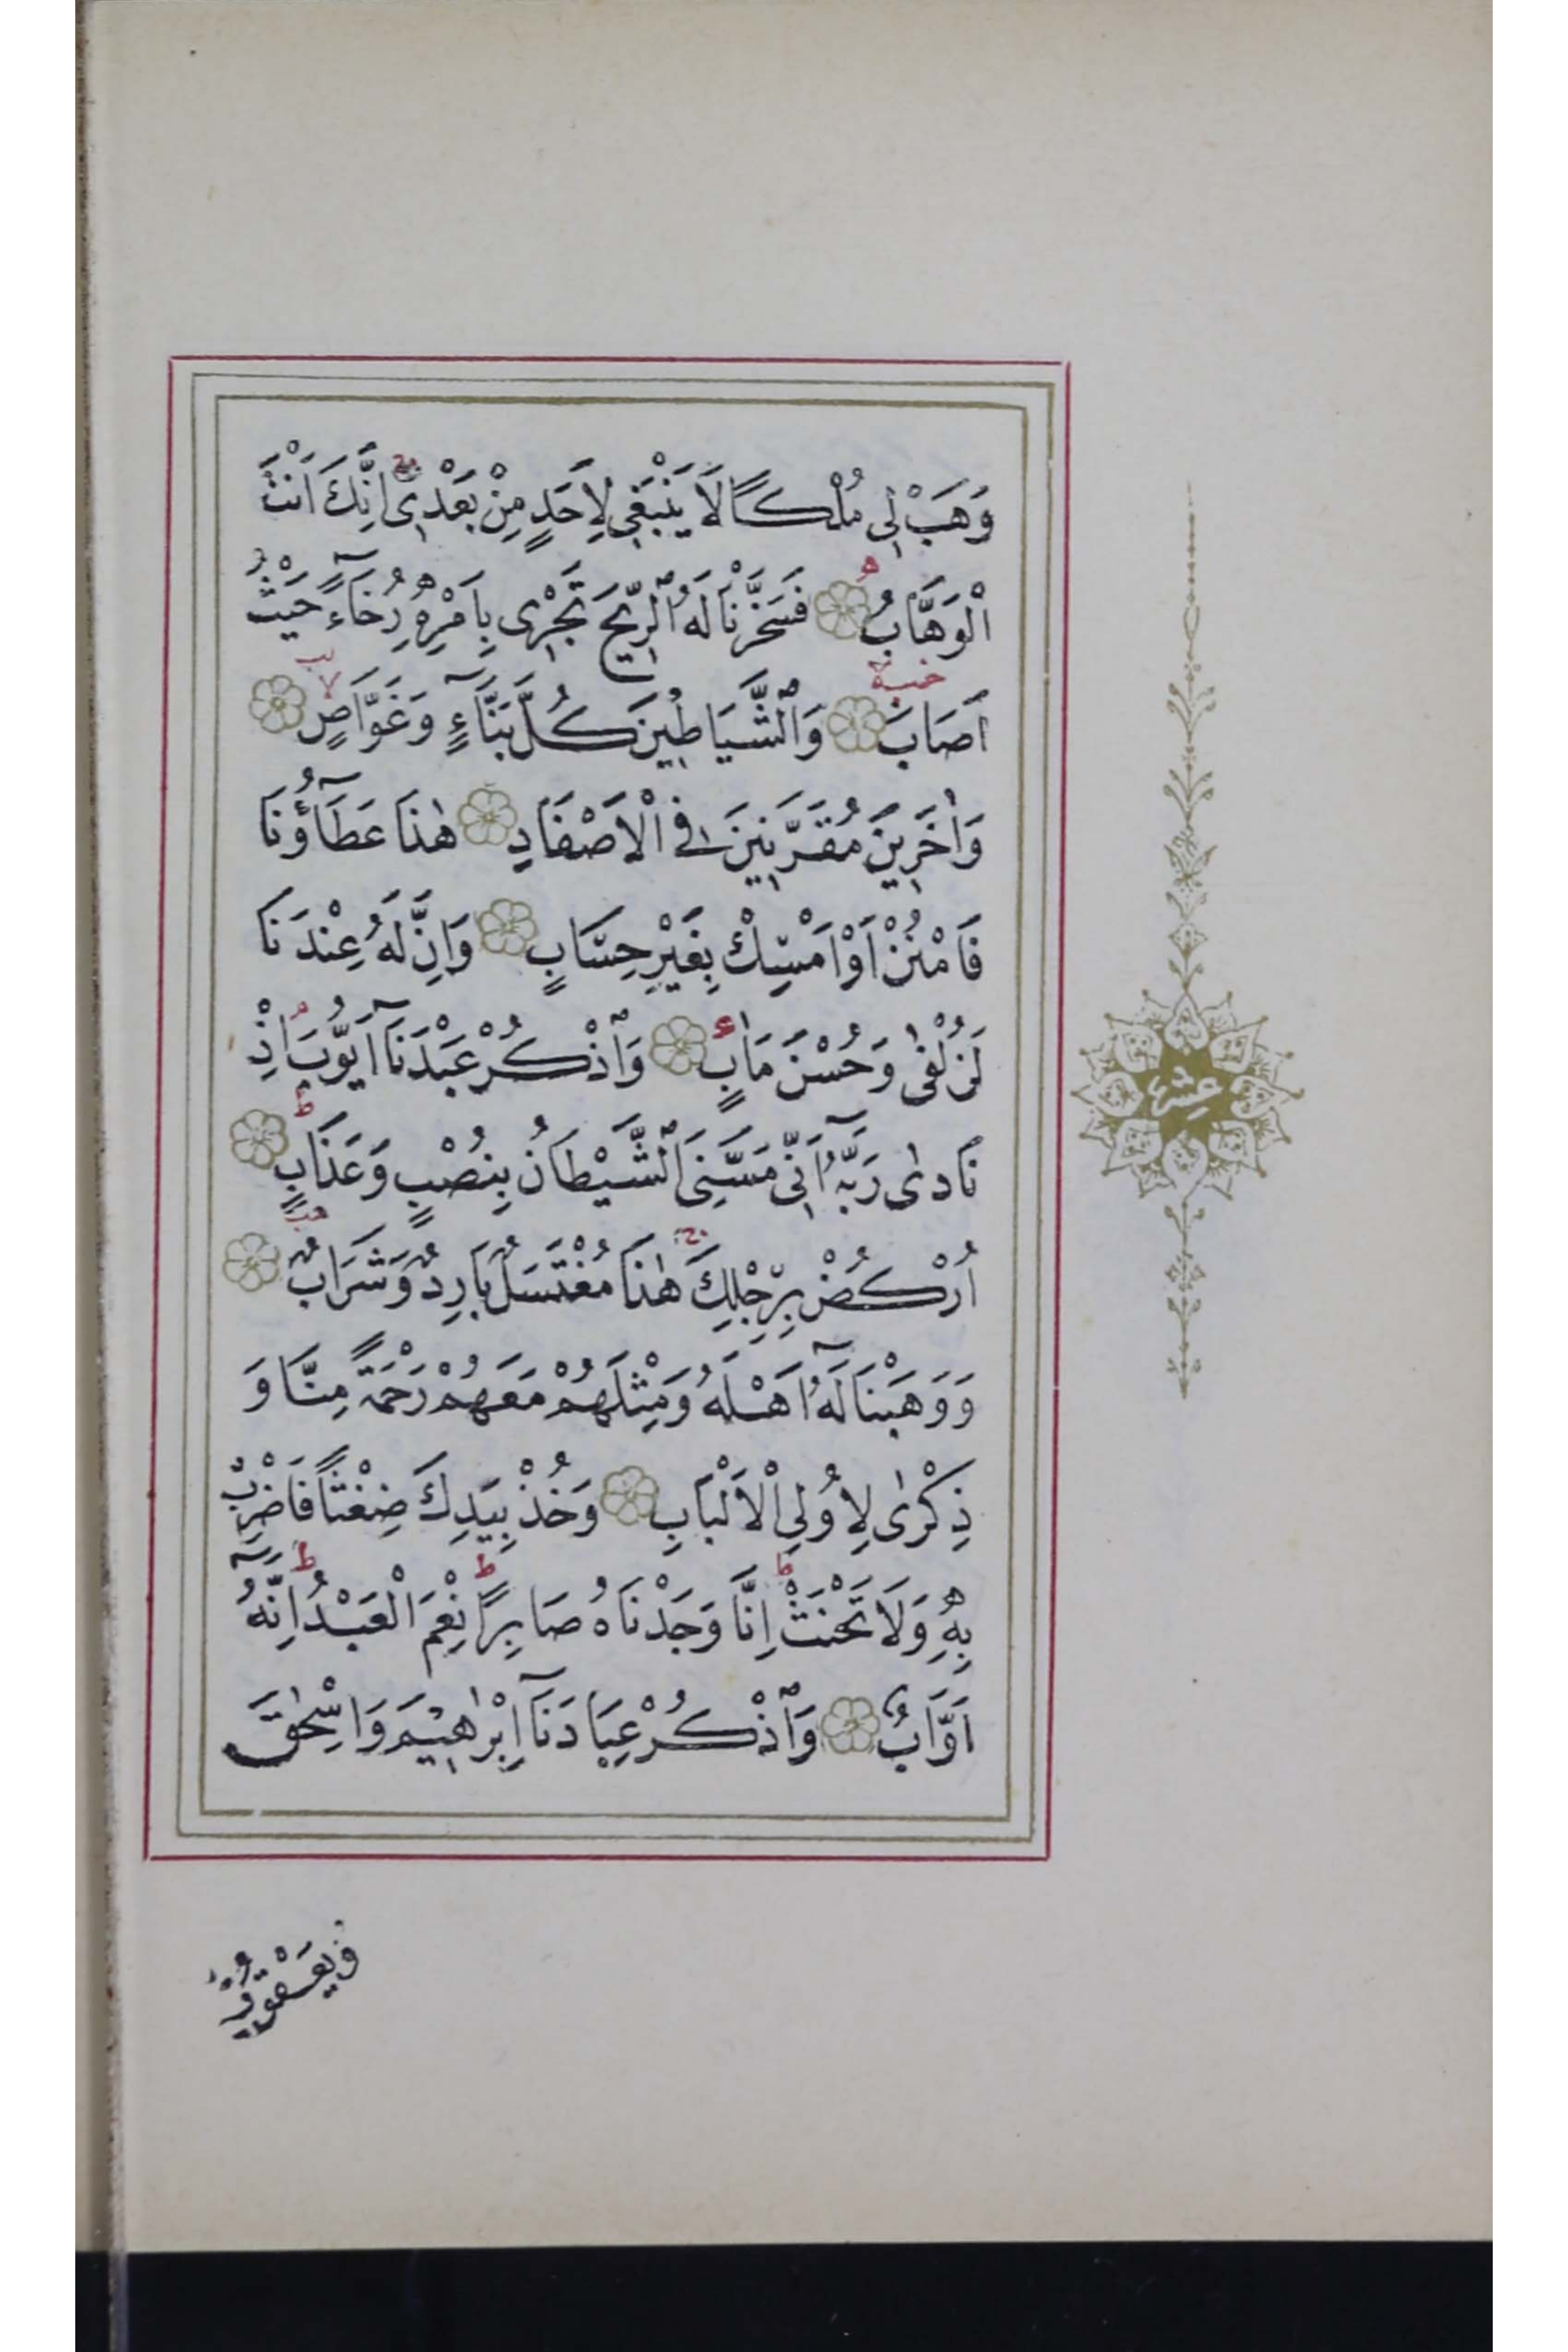 وَهَبْ لِى مُلْكًا لَا يَنْبَغِى لِاَحَدٍ مِنْ بَعْدِى اِنَّكَ اَنْتَ
الْوَهَّابُ فَسَخَّرْنَا لَهُ الرِّيحَ تَجْرِى بِاَمْرِهِ رُخَآءً حَيْثُ
اَصَابَ وَالشَّيَاطِينَ كُلَّ بَنَّآءٍ وَغَوَّاصٍ
وَاٰخَرِينَ مُقَرَّنِينَ فِى الْاَصْفَادِ هٰذَا عَطَآؤُنَا
فَامْنُنْ اَوْ اَمْسِكْ بِغَيْرِ حِسَابٍ وَاِنَّ لَهُ عِنْدَنَا
لَزُلْفٰى وَحُسْنَ مَاٰبٍ وَاذْكُرْ عَبْدَنَآ اَيُّوبَ اِذْ
نَادٰى رَبَّهُٓ اَنِّى مَسَّنِىَ الشَّيْطَانُ بِنُصْبٍ وَعَذَابٍ
اُرْكُضْ بِرِجْلِكَ هٰذَا مُغْتَسَلٌ بَارِدٌ وَشَرَابٌ
وَوَهَبْنَا لَهُٓ اَهْلَهُ وَمِثْلَهُمْ مَعَهُمْ رَحْمَةً مِنَّا وَ
ذِكْرٰى لِاُولِى الْاَلْبَابِ وَخُذْ بِيَدِكَ ضِغْثًا فَاضْرِبْ
بِهِ وَلَا تَحْنَثْ اِنَّا وَجَدْنَاهُ صَابِرًا نِعْمَ الْعَبْدُ اِنَّهُٓ
اَوَّابٌ وَاذْكُرْ عِبَادَنَآ اِبْرٰهِيمَ وَاِسْحٰقَ
وَيَعْقُوبَ
عشر